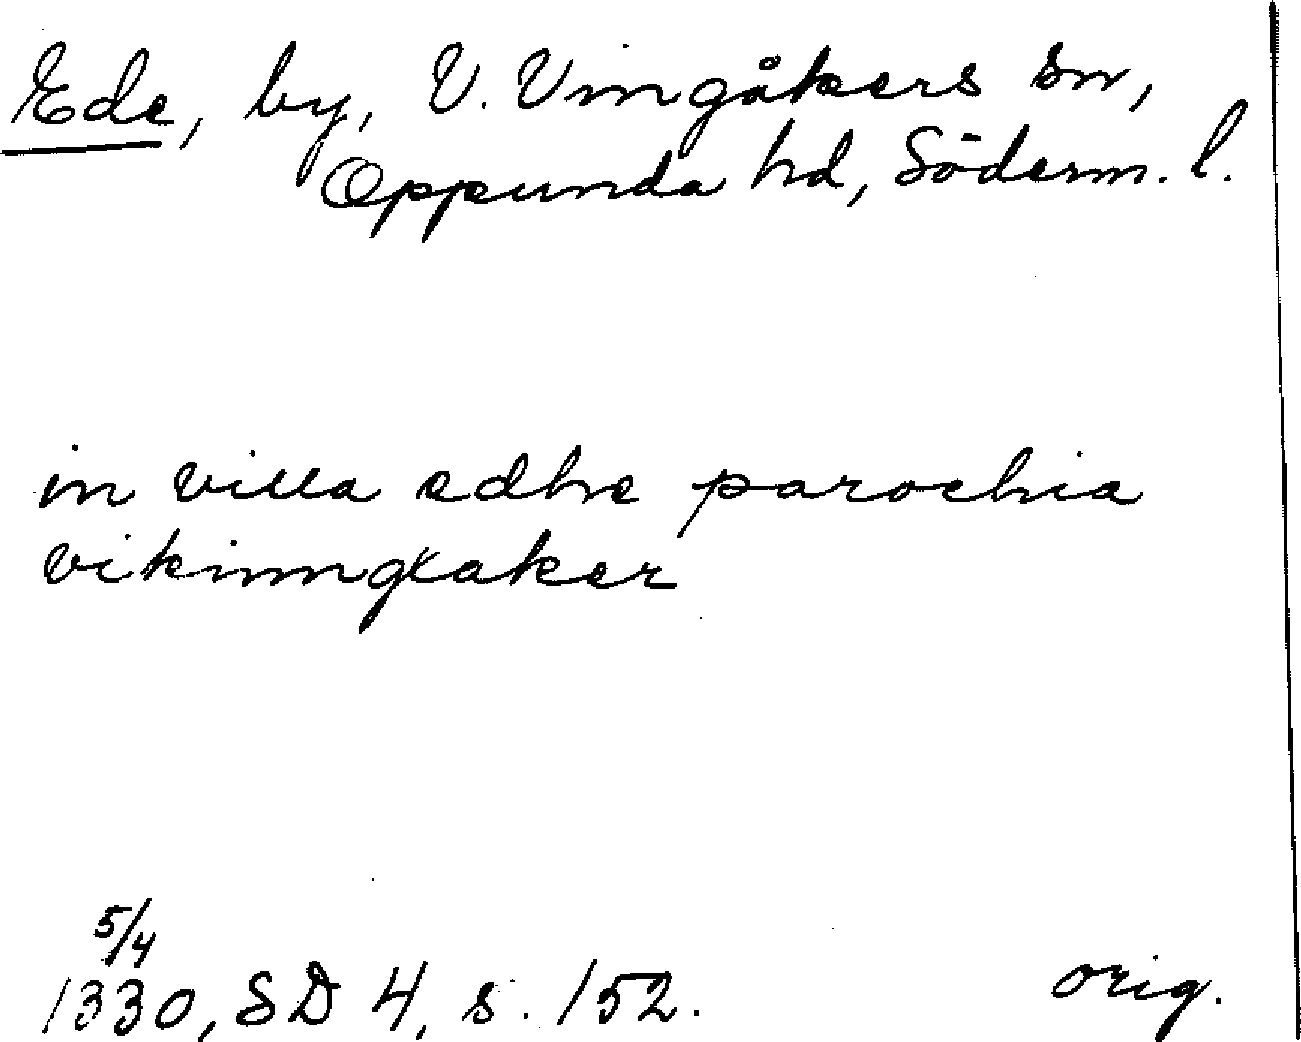 Ede, by, V. Vingåkers sn,
Oppunda hd, Söderm. l.
in villa edhe parochia
vikinngxaker
5/4
1330, SD 4, s. 152. orig.